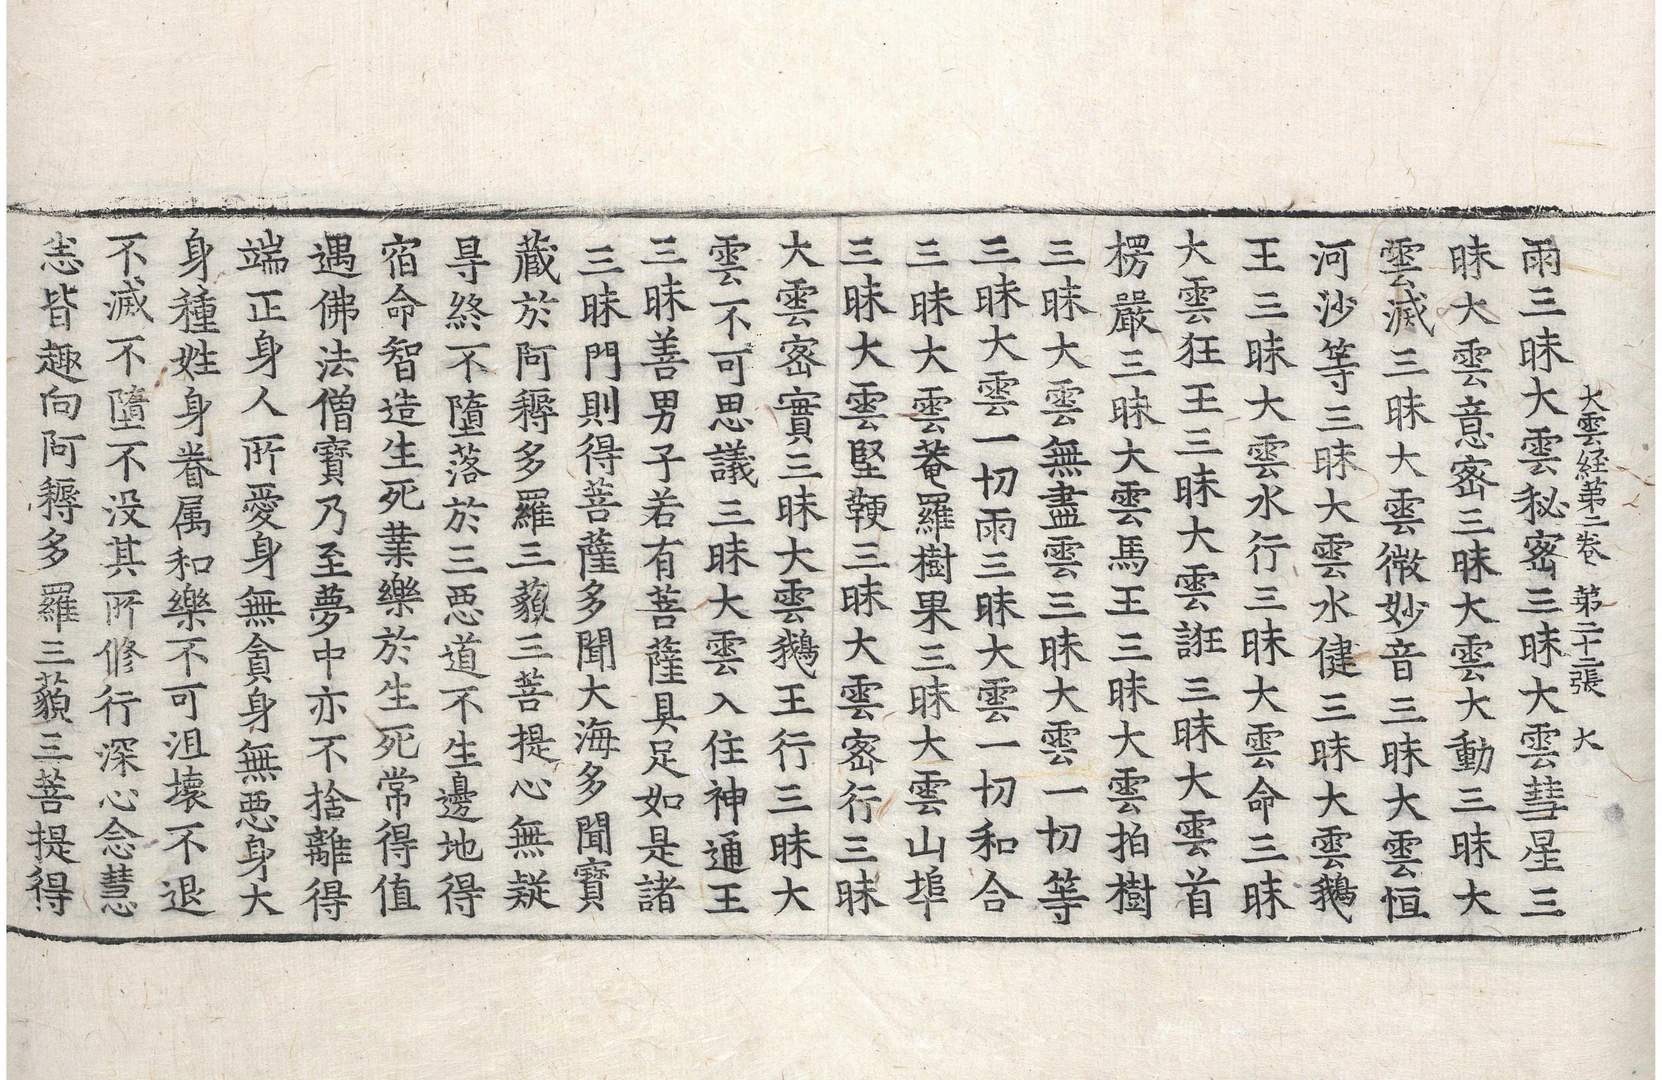 大雲経第二卷　第二十二張　大
雨三昧大雲秘密三昧大雲彗星三
昧大雲意密三昧大雲大動三昧大
雲滅三昧大雲微妙音三昧大雲恒
河沙等三昧大雲水健三昧大雲鵝
王三昧大雲水行三昧大雲命三昧
大雲狂王三昧大雲誑三昧大雲首
楞嚴三昧大雲馬王三昧大雲拍樹
三昧大雲無盡雲三昧大雲一切等
三昧大雲一切雨三昧大雲一切和合
三昧大雲菴羅樹果三昧大雲山埠
三昧大雲堅鞕三昧大雲密行三昧
大雲密實三昧大雲鵝王行三昧大
雲不可思議三昧大雲入住神通王
三昧善男子若有菩薩具足如是諸
三昧門則得菩薩多聞大海多聞寶
藏於阿耨多羅三藐三菩提心無疑
㝵終不墮落於三惡道不生邊地得
宿命智造生死業樂於生死常得值
遇佛法僧寶乃至夢中亦不捨離得
端正身人所愛身無貪身無惡身大
身種姓身眷属和樂不可沮壞不退
不滅不墮不没其所修行深心念慧
恙皆趣向阿耨多羅三藐三菩提得